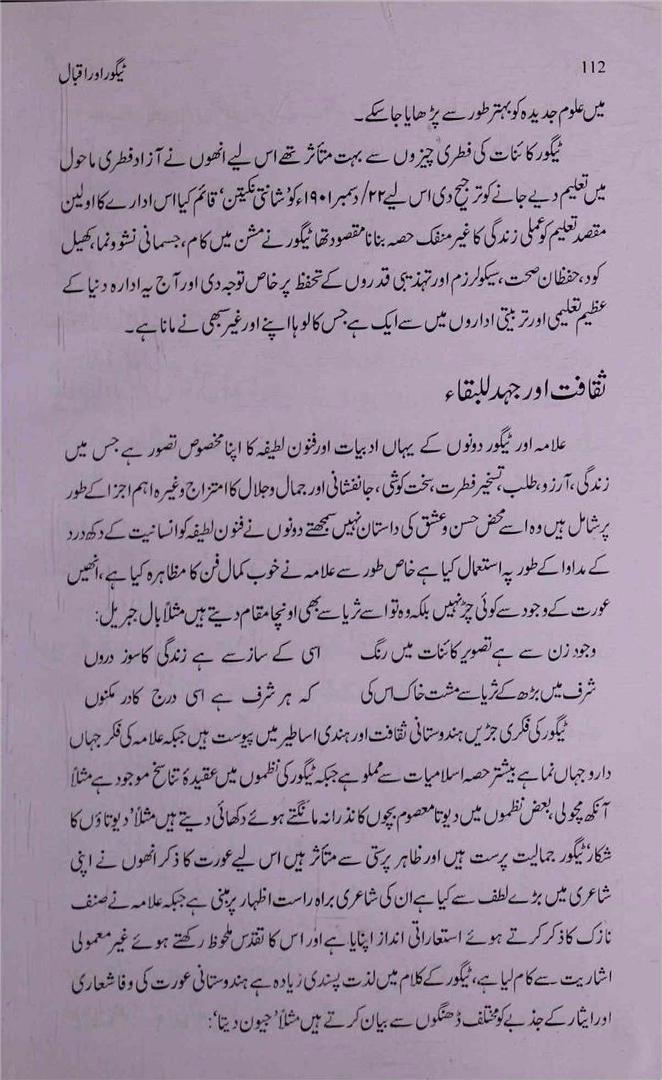 112
ٹیگور اور اقبال
میں علوم جدیدہ کو بہتر طور سے پڑھایا جا سکے۔
ٹیگور کائنات کی فطری چیزوں سے بہت متأثر تھے اس لیے انھوں نے آزاد فطری ماحول
میں تعلیم دیے جانے کو ترجیح دی اس لیے ۲۲/ دسمبر ۱۹۰۱ء کو ’شانتی نکیتن‘ قائم کیا اس ادارے کا اولین
مقصد تعلیم کو عملی زندگی کا غیر منفک حصہ بنانا مقصود تھا ٹیگور نے مشن میں کام، جسمانی نشو و نما، کھیل
کود، حفظان صحت، سیکولرزم اور تہذیبی قدروں کے تحفظ پر خاص توجہ دی اور آج یہ ادارہ دنیا کے
عظیم تعلیمی اور تربیتی اداروں میں سے ایک ہے جس کا لوہا اپنے اور غیر سبھی نے مانا ہے۔
ثقافت اور جہد للبقاء
علامہ اور ٹیگور دونوں کے یہاں ادبیات اور فنون لطیفہ کا اپنا مخصوص تصور ہے جس میں
زندگی، آرزو، طلب، تسخیر فطرت، سخت کوشی، جانفشانی اور جمال و جلال کا امتزاج وغیرہ اہم اجزا کے طور
پر شامل ہیں وہ اسے محض حسن و عشق کی داستان نہیں سمجھتے دونوں نے فنون لطیفہ کو انسانیت کے دکھ درد
کے مداوا کے طور پہ استعمال کیا ہے خاص طور سے علامہ نے خوب کمال فن کا مظاہرہ کیا ہے، انھیں
عورت کے وجود سے کوئی چڑ نہیں بلکہ وہ تو اسے ثریا سے بھی اونچا مقام دیتے ہیں مثلاً بال جبریل:
وجود زن سے ہے تصویر کائنات میں رنگ اسی کے ساز سے ہے زندگی کا سوز دروں
شرف میں بڑھ کے ثریا سے مشت خاک اس کی کہ ہر شرف ہے اسی درج کا در مکنوں
ٹیگور کی فکری جڑیں ہندوستانی ثقافت اور ہندی اساطیر میں پیوست ہیں جبکہ علامہ کی فکر جہاں
دار و جہاں نما ہے بیشتر حصہ اسلامیات سے مملو ہے جبکہ ٹیگور کی نظموں میں عقیدۂ تناسخ موجود ہے مثلاً
آنکھ مچولی، بعض نظموں میں دیوتا معصوم بچوں کا نذرانہ مانگتے ہوئے دکھائی دیتے ہیں مثلاً ’دیوتاؤں کا
شکار‘ ٹیگور جمالیت پرست ہیں اور ظاہر پرستی سے متأثر ہیں اس لیے عورت کا ذکر انھوں نے اپنی
شاعری میں بڑے لطف سے کیا ہے ان کی شاعری براہ راست اظہار پر مبنی ہے جبکہ علامہ نے صنف
نازک کا ذکر کرتے ہوئے استعاراتی انداز اپنایا ہے اور اس کا تقدّس ملحوظ رکھتے ہوئے غیر معمولی
اشاریت سے کام لیا ہے، ٹیگور کے کلام میں لذت پسندی زیادہ ہے ہندوستانی عورت کی وفا شعاری
اور ایثار کے جذبے کو مختلف ڈھنگوں سے بیان کرتے ہیں مثلاً ’جیون دیتا‘: